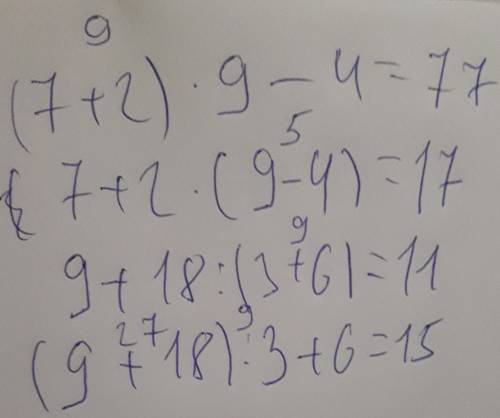 9
(7+2)·9-4=77
5
7+2·(9-4)=17
9
9+18:(3+6)=11
27 9
(9+18):3+6=15